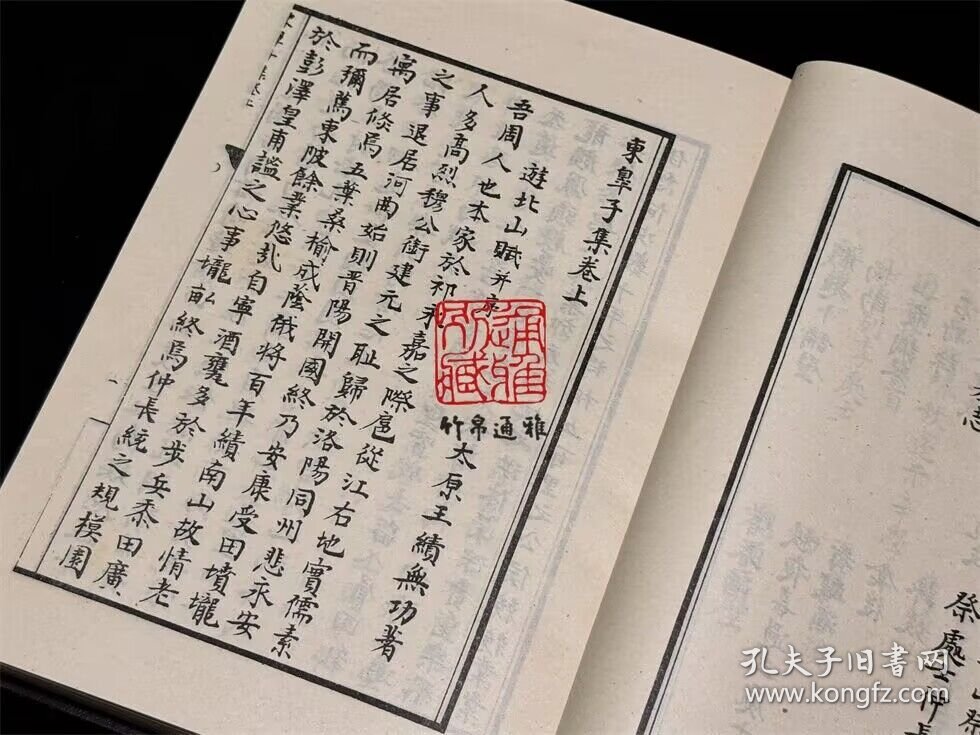 東皐子集卷上
太原王績無功著
遊北山賦并序
吾周人也本家於祁永嘉之際扈從江右地實儒素
人多高烈穆公銜建元之耻歸於洛陽同州悲永安
之事退居河曲始則晉陽開國終乃安康受田墳壠
寓居倏焉五葉桑榆成蔭俄將百年績南山故情老
而彌篤東陂餘業悠哉自寧酒甕多於步兵黍田廣
於彭澤皇甫謐之心事壠畝終焉仲長統之規模園
通雅
所藏
竹帛通雅
祭處士仲長
孔夫子旧书网
www.kongfz.com